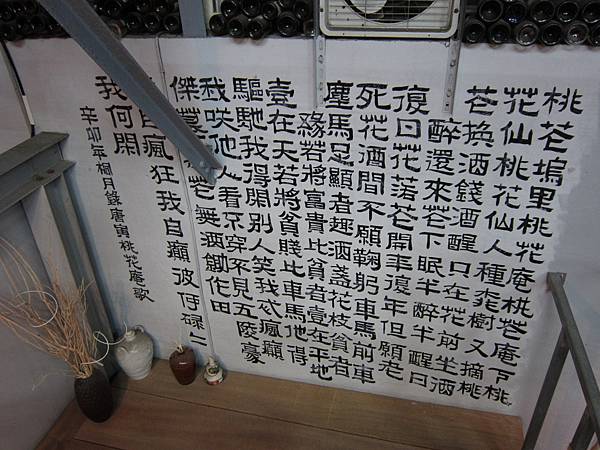 桃芲塢里桃花庵桃芲庵下桃
花仙桃花仙人種桃樹又摘桃
芲換酒錢酒醒只在花前坐酒
醉還來芲下眠半醉半醒日
復日花落芲開年復年但願老
死花酒間不願鞠躬車馬前車
塵馬足顯者趣酒盞花枝貧者
緣若將富貴比貧者壹在平地
壹在天若將貧賤比車馬他得
驅馳我得閑別人笑我忒瘋癲
我咲他人看不穿不見五陵豪
傑墓芲無酒鋤作田
自瘋狂我自癲彼何碌二
我何閑
辛卯年桐月錄唐寅桃花庵歌